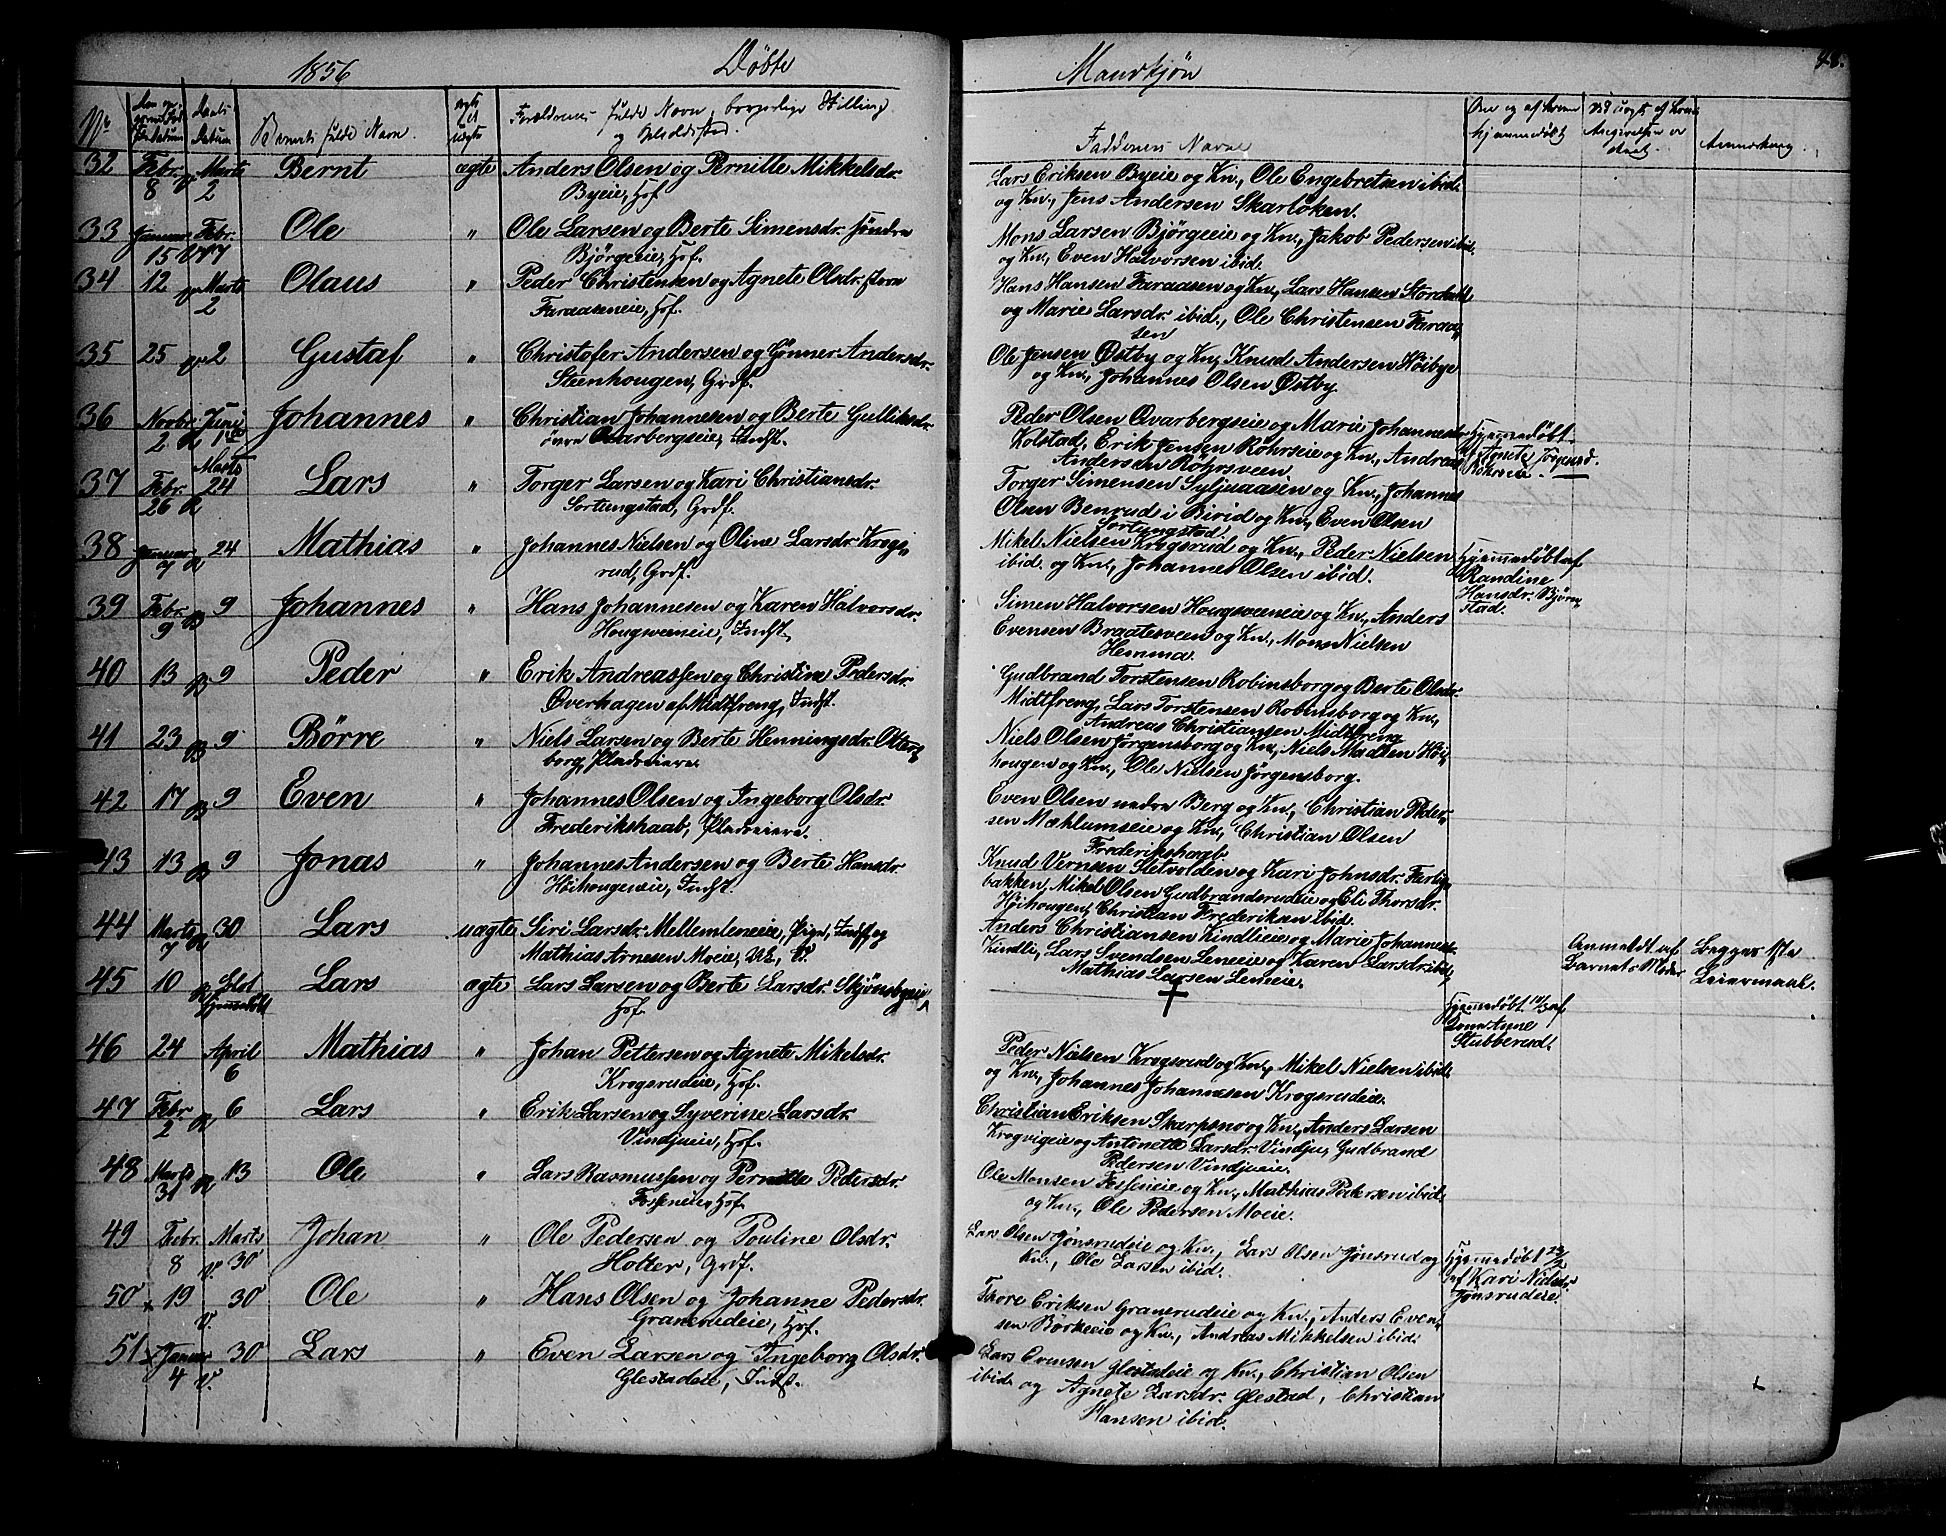 1856 Døbte Mandkjøn 48.
No Barnets fulde Navn. ægte eller uægte Forældrenes fulde Navn, borgerlige Stilling
og Opholdssted. Faddernes Navne Om og af hvem hjemmedøbt Anmærkning.
32 Febr. Marts Bernt ægte Anders Olsen og Pernille Mikkelsdr.
8 V 2 Byeie, Hof
Lars Eriksen Byeie og Kn., Ole Engebretsen ibid.
og Kn., Jens Andersen Skarløken.
33 Januar Febr. Ole " Ole Larsen og Berte Simensdr. søndre
15 V 17 Bjørgeeie, Hof.
Mons Larsen Bjørgeeie og Kn., Jakob Pedersen ibid.
og Kn., Even Halvorsen ibid.
34 12 V Marts Olaus " Peder Christensen og Agnete Olsdr. store
2 Faraaseneie, Hof.
Hans Hansen Faraasen og Kn., Lars Hansen
og Marie Larsdr. ibid., Ole Christensen Faraa-
sen
35 25 V 2 Gustaf " Christofer Andersen og Gønner Andersdr.
Steenhougen, Grdf.
Ole Jensen Østby og Kn., Knud Andersen Høibye
og Kn., Johannes Olsen Østby.
36 Novbr. Juni Johannes " Christian Johannesen og Berte Gulliksdr.
2 R 1ste øvre Qvarbergseie, Indst.
Peder Olsen Qvarbergseie og Marie Johannesdr.
Kolstad, Erik Jensen Röhrseie og Kn., Andreas
Andersen Röhrsveen.
Hjemmedøbt
af Agnete Jörgensd.
Röhrseie.
37 Febr. Marts 24 Lars " Torger Larsen og Kari Christiansdr.
26 R Sortungstad, Grdf.
Torger Simensen Syljuaasen og Kn., Johannes
Olsen Benrud i Birid og Kn., Even Olsen
Sortungstad.
38 Januar 24 Mathias " Johannes Nielsen og Oline Larsdr. Krogs-
7 R rud, Grdf.
Mikel Nielsen Krogsrud og Kn., Peder Nielsen
ibid. og Kn., Johannes Olsen ibid.
Hjemmedøbt af
Randine
Hansdr. Bjørn-
stad.
39 Febr. 9 Johannes " Hans Johannesen og Karen Halvorsdr.
9 B Hougsveeneie, Indst.
Simen Halvorsen Hougsveeneie og Kn., Anders
Evensen Braatesveen og Kn., Mons Nielsen
Hemma.
40 13 B 9 Peder " Erik Andreassen og Christine Pedersdr.
Øverhagen af Midtfreng, Indst.
Gudbrand Torstensen Robinsborg og Berte Olsdr.
Midtfreng, Lars Torstensen Robinsborg og Kn.,
Andreas Christiansen Midtfreng
41 23 B 9 Børre " Niels Larsen og Berte Henningsdr. Oters-
berg, Pladseiere.
Niels Olsen Jørgensborg og Kn., Niels Madsen Høi-
hougen og Kn., Ole Nielsen Jørgensborg.
42 17 B 9 Even " Johannes Olsen og Ingeborg Olsdr.
Frederikshaab, Pladseiere.
Even Olsen nedre Berg og Kn., Christian Peder-
sen Mæhlumseie og Kn., Christian Olsen
Frederikshaab
43 13 B 9 Jonas " Johannes Andersen og Berte Hansdr.
Høihougeneie, Indst.
Knud Vernsen Sletvolden og Kari Johnsdr.
bakken, Mikel Olsen Gudbrandsrudeie og Eli Thorsdr.
Høihougen, Christian Frederiksen ibid.
44 Marts 30 Lars uægte Siri Larsdr. Mellemleneie, Pige, Indst. og
7 R Mathias Arnesen Moeie,
Anders Christiansen Kindlieie og Marie Johannesdr.
Kindli, Lars Svendsen Leneeie og Karen Larsdr. ibid.,
Mathias Larsen Leneeie.
Anmeldt af
Barnets Moder
Begges 1ste
Leiermaal.
45 10 R Lars ægte Lars Larsen og Berte Larsdr. Skjønsbyeie,
Hjemmedøbt Hof.
†
Hjemmedøbt af
Anne
Stubberud.
46 24 April Mathias " Johan Pettersen og Agnete Mikelsdr.
6 Krogsrudeie, Hof.
Peder Nielsen Krogsrud og Kn., Mikel Nielsen ibid.
og Kn., Johannes Johannesen Krogsrudeie.
47 Febr. 6 Lars " Erik Larsen og Syverine Larsdr.
2 R Vindjueie, Hof.
Christian Eriksen Skarpsno og Kn., Anders Larsen
Krogvigeie og Antonette Larsdr. Vindju, Gudbrand
Pedersen Vindjueie.
48 Marts 13 Ole " Lars Rasmussen og Pernille Pedersdr.
31 R Fosseneie, Hof.
Ole Monsen Fosseneie og Kn., Mathias Pedersen ibid.
og Kn., Ole Pedersen Moeie.
49 Febr. Marts Johan " Ole Pedersen og Pouline Olsdr.
8 V. 30 Holter, Grdf.
Lars Olsen Jønsrudeie og Kn., Lars Olsen Jønsrud og
Kn., Ole Larsen ibid.
Hjemmedøbt
af Kari Nielsdr.
Jønsrudeie.
50 19 V. 30 Ole " Hans Olsen og Johanne Pedersdr.
Granerudeie, Hof.
Thore Eriksen Granerudeie og Kn., Anders Even-
sen Børkeeie og Kn., Andreas Mikkelsen ibid.
51 Januar 30 Lars " Even Larsen og Ingeborg Olsdr.
4 V. Glestadeie, Indst.
Lars Evensen Glestadeie og Kn., Christian Olsen
ibid. og Agnete Larsdr. Glestad, Christian
Hansen ibid.